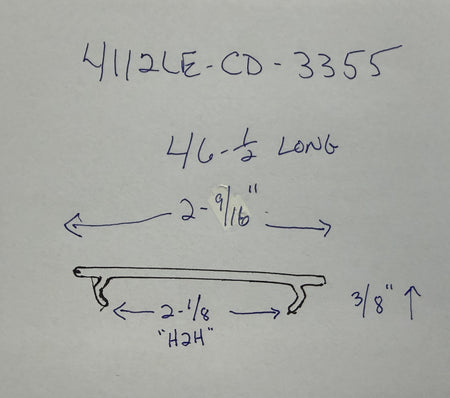 4112LE-CD-3355
46-1/2 LONG
2-9/16"
2-1/8 3/8"
"H2H"